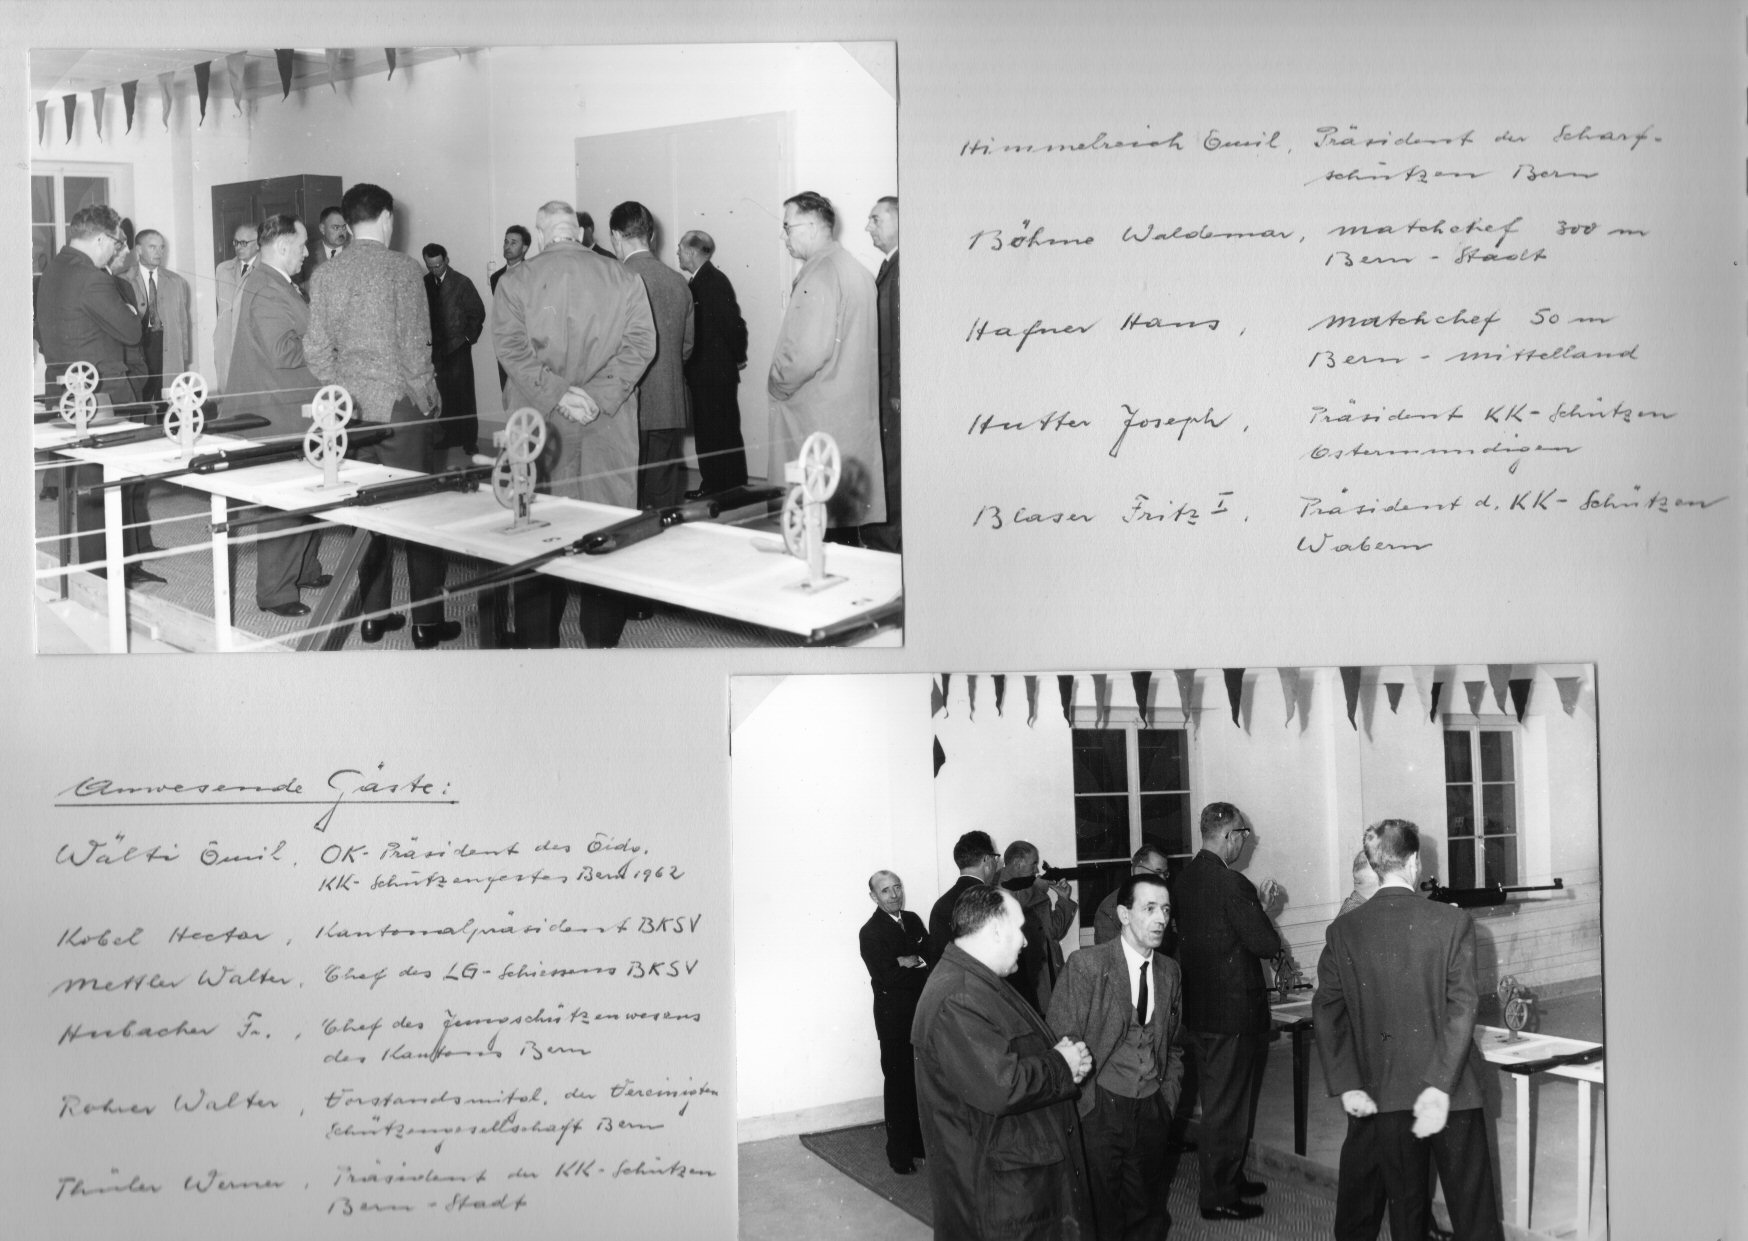 Himmelreich Emil, Präsident der Scharf-
schützen Bern
Böhme Waldemar, Matchchef 300 m
Bern - Stadt
Hafner Hans, Matchchef 50 m
Bern - Mittelland
Hutter Joseph, Präsident KK- Schützen
Ostermundigen
Blaser Fritz I, Präsident d. KK- Schützen
Wabern
Anwesende Gäste:
Wälti Emil, OK- Präsident des Eidg.
KK- Schützenfestes Bern 1962
Kobel Hector, Kantonalpräsident BKSV
Mettler Walter, Chef des LG- Schiessens BKSV
Hubacher Fr., Chef des Jungschützenwesens
des Kantons Bern
Rohrer Walter, Vorstandsmitgl. der Vereinigten
Schützengesellschaft Bern
Thüler Werner, Präsident der KK- Schützen
Bern - Stadt